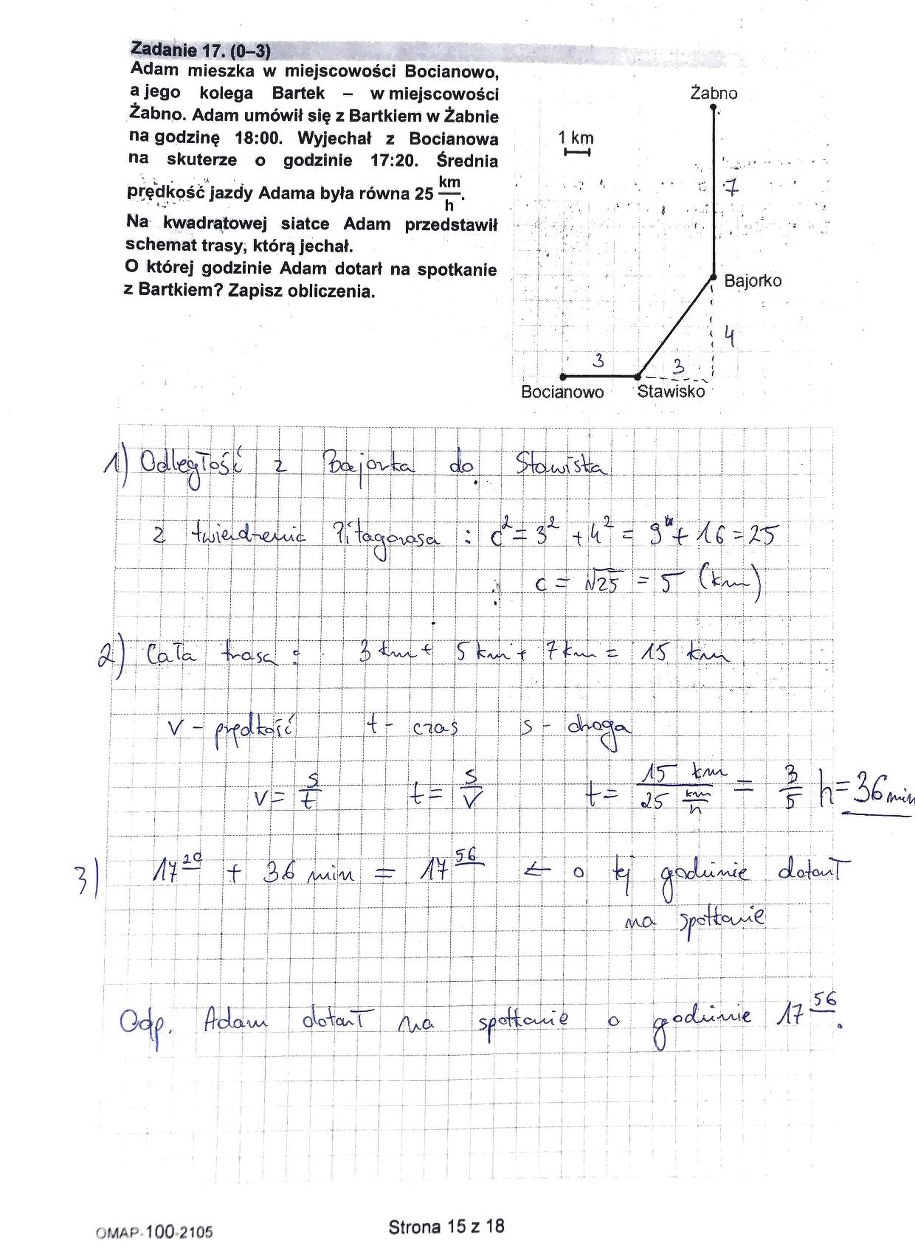 Zadanie 17. (0–3)
Adam mieszka w miejscowości Bocianowo,
a jego kolega Bartek – w miejscowości
Żabno. Adam umówił się z Bartkiem w Żabnie
na godzinę 18:00. Wyjechał z Bocianowa
na skuterze o godzinie 17:20. Średnia
prędkość jazdy Adama była równa 25 km/h.
Na kwadratowej siatce Adam przedstawił
schemat trasy, którą jechał.
O której godzinie Adam dotarł na spotkanie
z Bartkiem? Zapisz obliczenia.
Żabno
1 km
7
Bajorko
4
3
3
Bocianowo
Stawisko
1) Odległość z Bajorka do Stawiska
z twierdzenia Pitagorasa : c² = 3² + 4² = 9 + 16 = 25
c = √25 = 5 (km)
2) Cała trasa : 3 km + 5 km + 7 km = 15 km
v - prędkość t - czas s - droga
v = s/t t = s/v t = 15 km / 25 km/h = 3/5 h = 36 min
3) 17 20 + 36 min = 17 56 ← o tej godzinie dotarł
na spotkanie
Odp. Adam dotarł na spotkanie o godzinie 17 56.
OMAP-100-2105
Strona 15 z 18